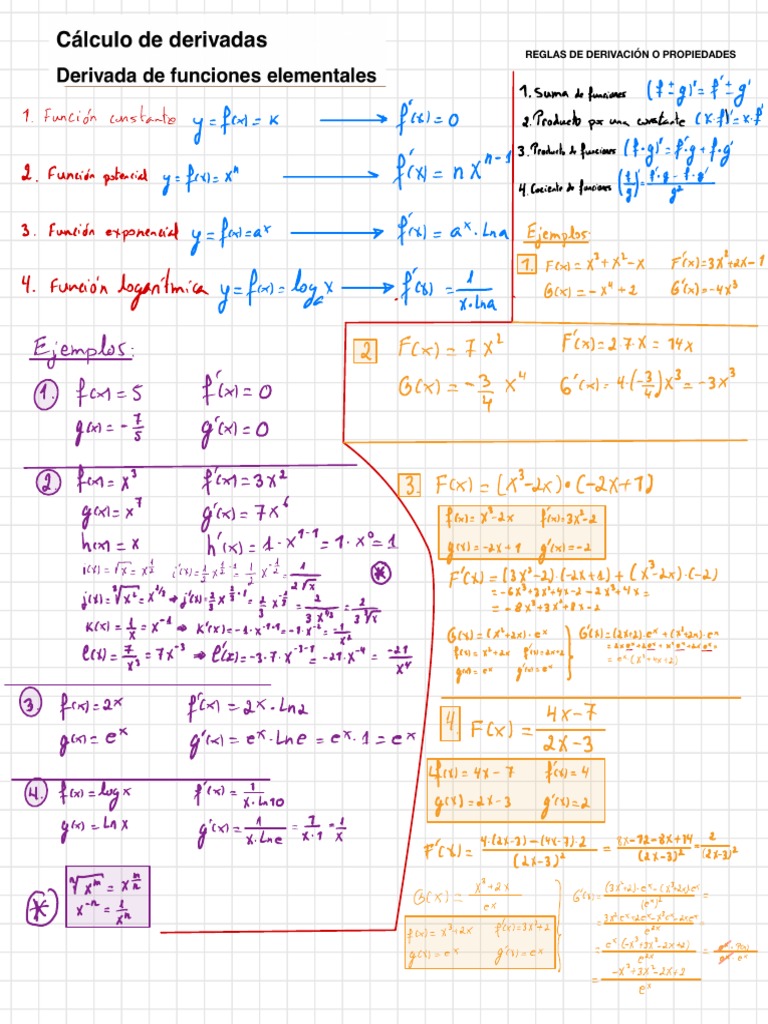 Cálculo de derivadas
Derivada de funciones elementales
1. Función constante y = f(x) = K → f'(x) = 0
2. Función potencial y = f(x) = xⁿ → f'(x) = n xⁿ⁻¹
3. Función exponencial y = f(x) = aˣ → f'(x) = aˣ · Lna
4. Función logarítmica y = f(x) = logₐ x → f'(x) = 1/(x·Lna)
REGLAS DE DERIVACIÓN O PROPIEDADES
1. Suma de funciones (f ± g)' = f' ± g'
2. Producto por una constante (K·f)' = K·f'
3. Producto de funciones (f·g)' = f'·g + f·g'
4. Cociente de funciones (f/g)' = (f'·g - f·g')/g²
Ejemplos:
1. f(x) = 5 f'(x) = 0
g(x) = -7/5 g'(x) = 0
2. f(x) = x³ f'(x) = 3x²
g(x) = x⁷ g'(x) = 7x⁶
h(x) = x h'(x) = 1·x¹⁻¹ = 1·x⁰ = 1
i(x) = √x = x^(1/2) i'(x) = 1/2 x^(1/2-1) = 1/2 x^(-1/2) = 1/(2√x) *
j(x) = ³√x² = x^(2/3) → j'(x) = 2/3 x^(2/3-1) = 2/3 x^(-1/3) = 2/(3x^(1/3)) = 2/(3 ³√x)
K(x) = 1/x = x⁻¹ → K'(x) = -1·x⁻¹⁻¹ = -1·x⁻² = -1/x²
l(x) = 7/x³ = 7x⁻³ → l'(x) = -3·7·x⁻³⁻¹ = -21·x⁻⁴ = -21/x⁴
3 f(x) = 2x f'(x) = 2x·Ln2
g(x) = eˣ g'(x) = eˣ·Lne = eˣ·1 = eˣ
4. f(x) = log x f'(x) = 1/(x·Ln10)
g(x) = Ln x g'(x) = 1/(x·Lne) = 1/(x·1) = 1/x
* ⁿ√xᵐ = x^(m/n)
x⁻ⁿ = 1/xⁿ
Ejemplos:
1. F(x) = x³ + x² - x F'(x) = 3x² + 2x - 1
G(x) = -x⁴ + 2 G'(x) = -4x³
2 F(x) = 7x² F'(x) = 2·7x = 14x
G(x) = -3/4 x⁴ G'(x) = 4·(-3/4)x³ = -3x³
3. F(x) = (x³ - 2x)·(-2x + 1)
f(x) = x³ - 2x f'(x) = 3x² - 2
g(x) = -2x + 1 g'(x) = -2
F'(x) = (3x² - 2)·(-2x + 1) + (x³ - 2x)·(-2)
= -6x³ + 3x² + 4x - 2 - 2x³ + 4x =
= -8x³ + 3x² + 8x - 2
G(x) = (x² + 2x)·eˣ G'(x) = (2x + 2)·eˣ + (x² + 2x)·eˣ
f(x) = x² + 2x f'(x) = 2x + 2 = 2xeˣ + 2eˣ + x²eˣ + 2xeˣ =
g(x) = eˣ g'(x) = eˣ = eˣ(x² + 4x + 2)
4. F(x) = (4x - 7)/(2x - 3)
f(x) = 4x - 7 f'(x) = 4
g(x) = 2x - 3 g'(x) = 2
F'(x) = (4·(2x - 3) - (4x - 7)·2)/(2x - 3)² = (8x - 12 - 8x + 14)/(2x - 3)² = 2/(2x - 3)²
G(x) = (x³ + 2x)/eˣ G'(x) = ((3x² + 2)·eˣ - (x³ + 2x)eˣ)/(eˣ)² =
= (3x²eˣ + 2eˣ - x³eˣ - 2xeˣ)/e²ˣ =
f(x) = x³ + 2x f'(x) = 3x² + 2
g(x) = eˣ g'(x) = eˣ
= eˣ(-x³ + 3x² - 2x + 2)/e²ˣ =
= (-x³ + 3x² - 2x + 2)/eˣ